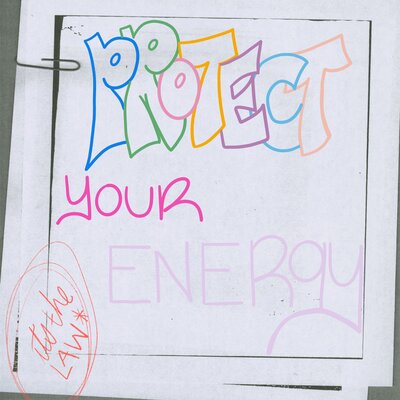 PROTECT
YOUR
ENERGY
its the
LAW*